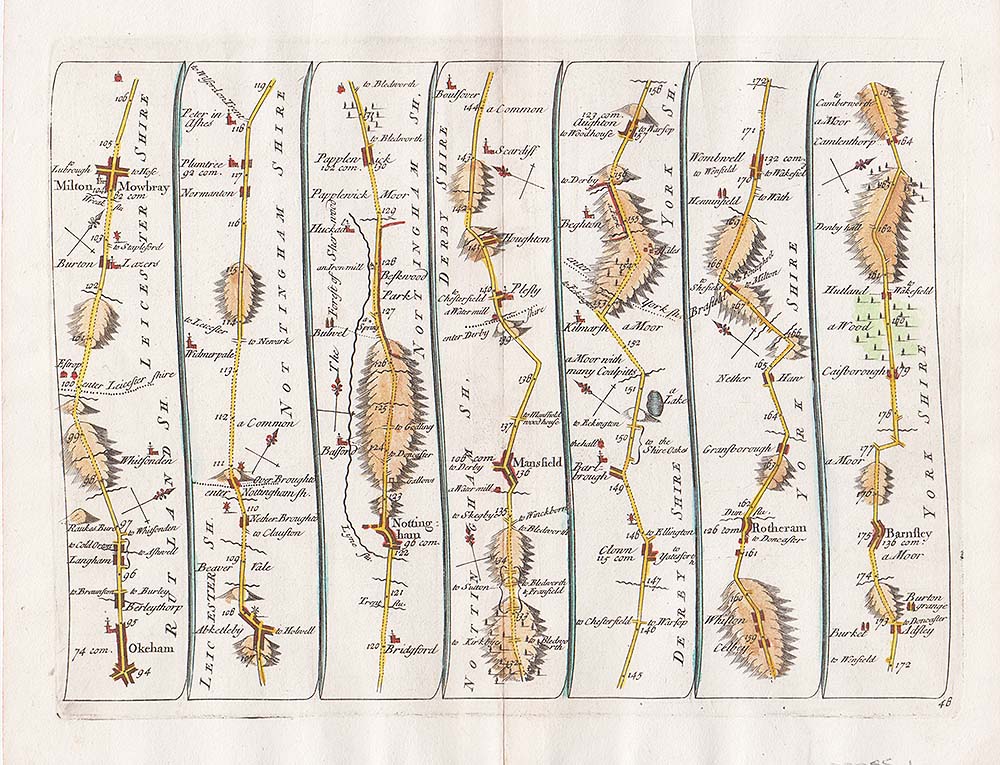 106
LEICESTER SHIRE
105
to Lubrough
to Hose
Milton Mowbray
104
82 com.
Wreak flu
103
to Stapleford
Burton Lazers
102
101
Estrop
100
enter Leicester shire
99
Whitsonden
98
RUTLAND SH.
Raukes Buro
97
to Whitsonden
to Cold Orton
to Ashwell
Langham
96
to Braunston
to Burley
Berleythorp
95
74 com.
Okeham
94
to Wilford on Trent
119
Peter in Ashes
118
Plumtree
92 com.
117
Normanton
NOTTINGHAM SHIRE
116
115
to Leicester
114
to Newark
Widmerpale
113
112
a Common
111
Over Broughto
enter Nottingham sh.
110
Nether Broughto
to Clauston
109
Beaver Vale
LEICESTER SH.
108
Abketleby
to Holwell
107
to Bledworth
131
to Bledworth
Papplewick
102 com.
130
Papplewick Moor
129
Huckad
an Iron mill
128
Beskwood Park
127
The Forest of Sherwood
Bulwel
a Spring
126
125
to Godling
Basford
124
to Doncaster
Gallows
123
Lyne flu
Nottingham
96 com.
122
121
Trent flu.
120
Bridgford
NOTTINGHAM SH.
Boulsover
144
a Common
Scardiff
143
142
DERBY SHIRE
Houghton
to Chesterfield
140
Plesly
a Water mill
enter Derby shire
139
138
to Mansfield woodhouse
137
108 com.
to Derby
Mansfield
136
a Water mill
to Skegby
135
to Winckborn
to Bledworth
134
to Sutton
to Bledworth & Franfield
133
to Kirkby
to Bledworth
132
NOTTINGHAM SH.
156
123 com.
Aughton
to Woodhouse
157
to Warsop
YORK SH.
to Derby
156
Beghton
155
Wales
154
enter York sh.
153
Kilmarsh
a Moor
152
a Moor with many Coalpitts
151
a Lake
to Eckington
150
the hall
to the Shire Oakes
Barlbrough
149
148
to Ellington
Clown
115 com.
147
to Chesterfield
to Warsop
146
145
DERBY SHIRE
172
171
Wombwell
132 com.
to Winfield
to Wakefield
170
Hemminfield
to Wath
169
168
to Shefield
to Milton
167
Brasfild
166
165
Nether Haw
164
Gransborough
163
162
Dun flu
126 com.
Rotheram
to Doncaster
161
160
Whiston
159
YORK SHIRE
to Camberworth
165
a Moor
Camlenthorp
164
163
Denby hall
162
161
Hutland
to Wakefield
a Wood
160
Caisborough
179
178
177
a Moor
176
Barnsley
175
136 com.
a Moor
174
Burton grange
Burkel
173
to Doncaster
Adsley
to Winfield
172
YORK SHIRE
48